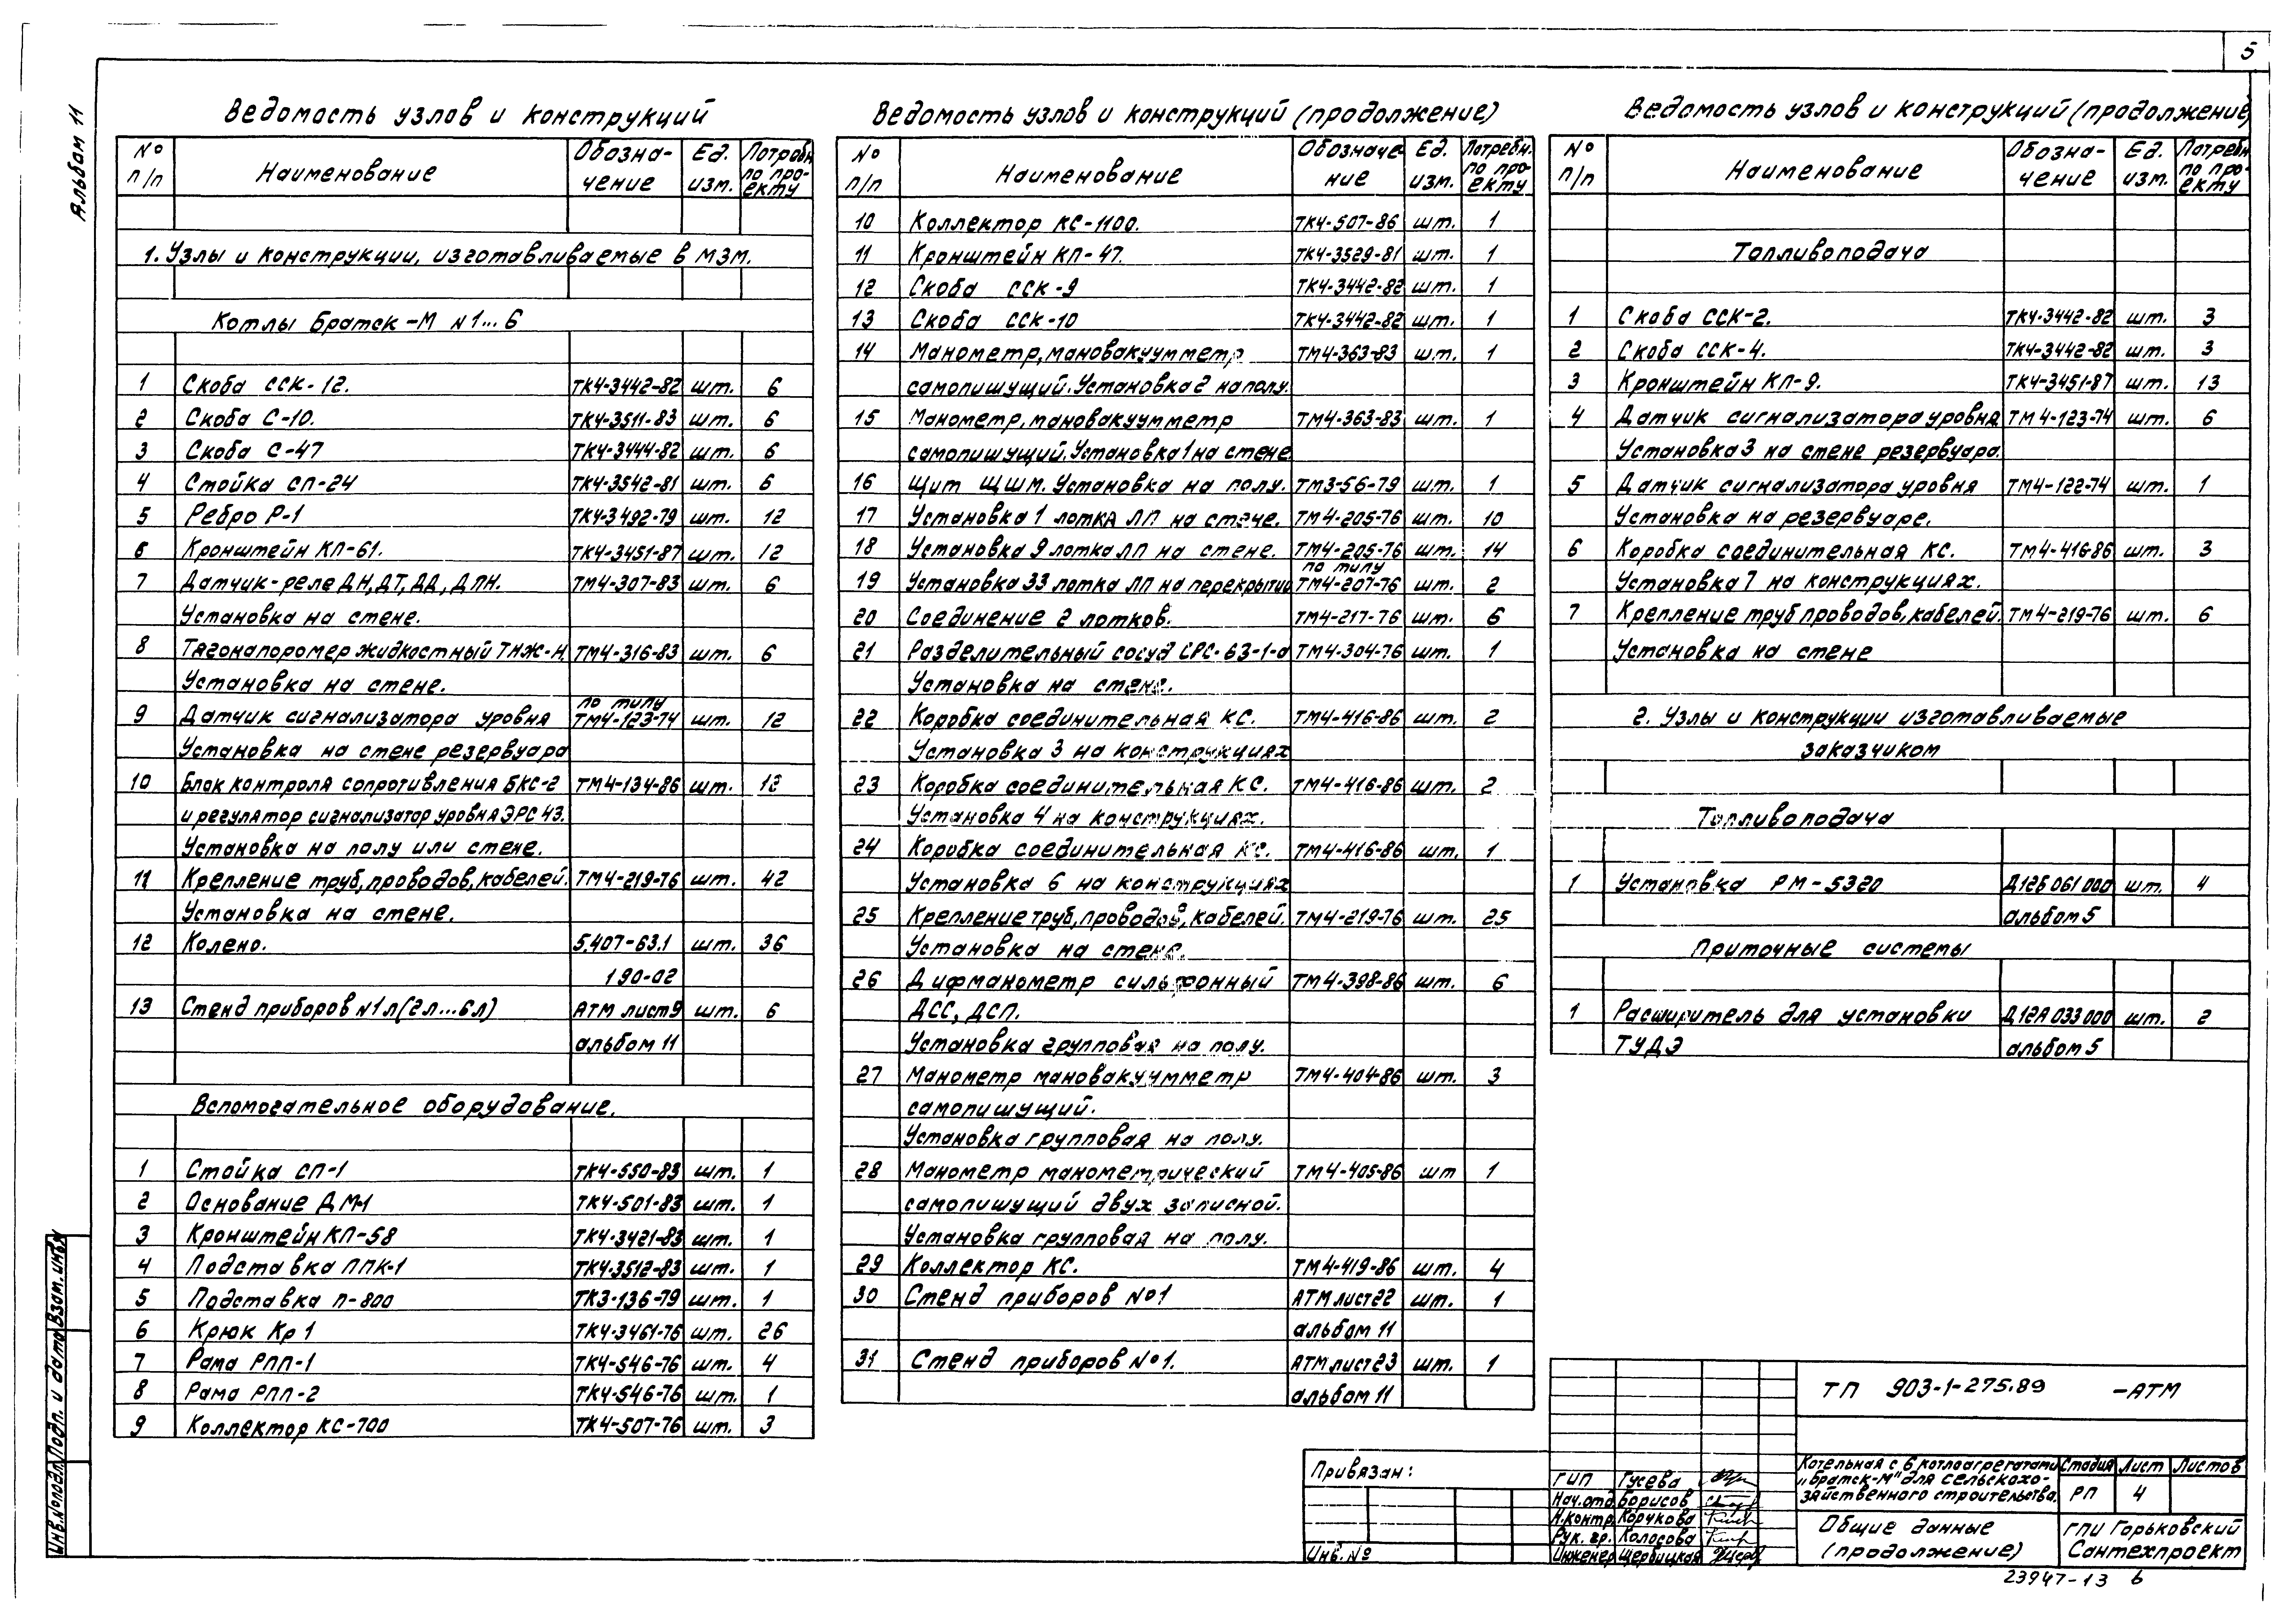 5
Альбом 11
Ведомость узлов и конструкций
№ п/п Наименование Обозначение Ед. изм. Потребн. по проекту
1. Узлы и конструкции, изготавливаемые в МЗМ.
Котлы Братск-М №1...6
1 Скоба ССК-12. ТК4-3442-82 шт. 6
2 Скоба С-10. ТК4-3511-83 шт. 6
3 Скоба С-47 ТК4-3444-82 шт. 6
4 Стойка СП-24 ТК4-3542-81 шт. 6
5 Ребро Р-1 ТК4-3492-79 шт. 12
6 Кронштейн КП-61. ТК4-3451-87 шт. 12
7 Датчик-реле ДН,ДТ,ДД,ДПН. ТМ4-307-83 шт. 6
Установка на стене.
8 Тягонапоромер жидкостный ТНЖ-Н. ТМ4-316-83 шт. 6
Установка на стене.
по типу
9 Датчик сигнализатора уровня ТМ4-123-74 шт. 12
Установка на стене резервуара
10 Блок контроля сопротивления БКС-2 ТМ4-134-86 шт. 12
и регулятор сигнализатор уровня ЭРС ЧЗ.
Установка на полу или стене.
11 Крепление труб, проводов, кабелей. ТМ4-219-76 шт. 42
Установка на стене.
12 Колено. 5.407-63.1 шт. 36
190-02
13 Стенд приборов №1л(2л...6л) АТМ лист9 шт. 6
альбом 11
Вспомогательное оборудование.
1 Стойка СП-1 ТК4-550-83 шт. 1
2 Основание ДМ-1 ТК4-501-83 шт. 1
3 Кронштейн КП-58 ТК4-3421-83 шт. 1
4 Подставка ППК-1 ТК4-3512-83 шт. 1
5 Подставка П-800 ТК3-136-79 шт. 1
6 Крюк Кр 1 ТК4-3461-76 шт. 26
7 Рама РПП-1 ТК4-546-76 шт. 4
8 Рама РПП-2 ТК4-546-76 шт. 1
9 Коллектор КС-700 ТК4-507-76 шт. 3
Ведомость узлов и конструкций (продолжение)
№ п/п Наименование Обозначение Ед. изм. Потребн. по проекту
10 Коллектор КС-1100. ТК4-507-86 шт. 1
11 Кронштейн КП-47. ТК4-3529-81 шт. 1
12 Скоба ССК-9 ТК4-3442-82 шт. 1
13 Скоба ССК-10 ТК4-3442-82 шт. 1
14 Манометр, мановакуумметр ТМ4-363-83 шт. 1
самопишущий. Установка 2 на полу.
15 Манометр, мановакуумметр ТМ4-363-83 шт. 1
самопишущий. Установка 1 на стене
16 Щит ЩШМ. Установка на полу. ТМ3-56-79 шт. 1
17 Установка 1 лотка ЛП на стене. ТМ4-205-76 шт. 10
18 Установка 9 лотка ЛП на стене. ТМ4-205-76 шт. 14
по типу
19 Установка 33 лотка ЛП на перекрытии ТМ4-207-76 шт. 2
20 Соединение 2 лотков. ТМ4-217-76 шт. 6
21 Разделительный сосуд СРС-63-1-а ТМ4-304-76 шт. 1
Установка на стене.
22 Коробка соединительная КС. ТМ4-416-86 шт. 2
Установка 3 на конструкциях
23 Коробка соединительная КС. ТМ4-416-86 шт. 2
Установка 4 на конструкциях.
24 Коробка соединительная КС. ТМ4-416-86 шт. 1
Установка 6 на конструкциях
25 Крепление труб, проводов, кабелей. ТМ4-219-76 шт. 25
Установка на стене.
26 Дифманометр сильфонный ТМ4-398-86 шт. 6
ДСС, ДСП.
Установка групповая на полу.
27 Манометр мановакуумметр ТМ4-404-86 шт. 3
самопишущий.
Установка групповая на полу.
28 Манометр манометрический ТМ4-405-86 шт 1
самопишущий двух записной.
Установка групповая на полу.
29 Коллектор КС. ТМ4-419-86 шт. 4
30 Стенд приборов №1 АТМ лист 22 шт. 1
альбом 11
31 Стенд приборов №1. АТМ лист 23 шт. 1
альбом 11
Ведомость узлов и конструкций (продолжение)
№ п/п Наименование Обозначение Ед. изм. Потребн. по проекту
Топливоподача
1 Скоба ССК-2. ТК4-3442-82 шт. 3
2 Скоба ССК-4. ТК4-3442-82 шт. 3
3 Кронштейн КП-9. ТК4-3451-87 шт. 13
4 Датчик сигнализатора уровня ТМ4-123-74 шт. 6
Установка 3 на стене резервуара.
5 Датчик сигнализатора уровня ТМ4-122-74 шт. 1
Установка на резервуаре.
6 Коробка соединительная КС. ТМ4-416-86 шт. 3
Установка 7 на конструкциях.
7 Крепление труб проводов, кабелей. ТМ4-219-76 шт. 6
Установка на стене
2. Узлы и конструкции изготавливаемые
заказчиком
Топливоподача
1 Установка РМ-5320 Д12Б 061 000 шт. 4
альбом 5
Приточные системы
1 Расширитель для установки Д12А 033 000 шт. 2
ТУДЭ альбом 5
Привязан:
Инв. №
ТП 903-1-275.89 -АТМ
ГИП Гусева
Нач.отд. Борисов
Н.контр. Корчкова
Рук. гр. Колосова
Инженер Щербицкая
Котельная с 6 котлоагрегатами
„Братск-М" для сельскохо-
зяйственного строительства.
Стадия Лист Листов
РП 4
Общие данные
(продолжение)
ГПИ Горьковский
Сантехпроект
23947-13 6
Инв.№подл. Подп. и дата Взам.инв.№